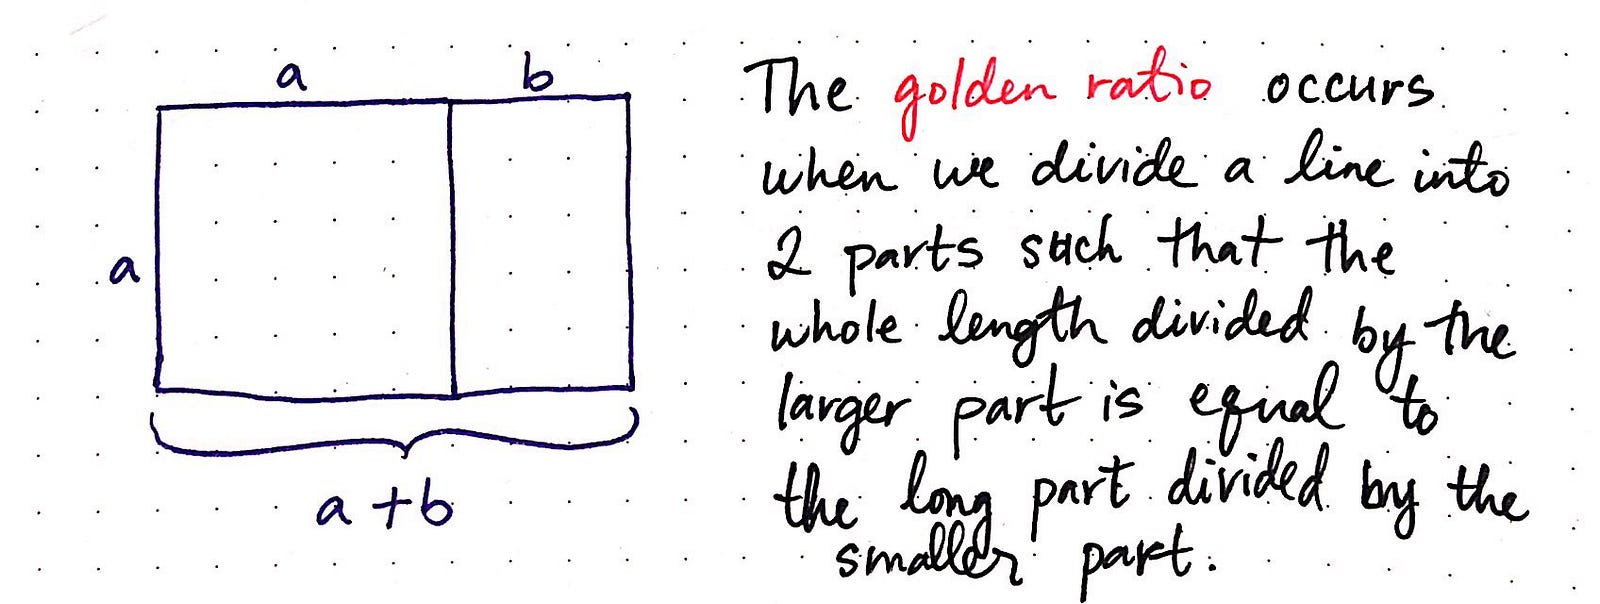 a
b
a
a + b
The golden ratio occurs
when we divide a line into
2 parts such that the
whole length divided by the
larger part is equal to
the long part divided by the
smaller part.